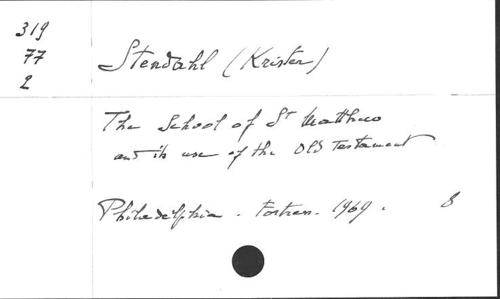 319
77
2
Stendahl (Krister)
The School of St Matthew
and its use of the Old Testament
Philadelphia. Fortress. 1969. 8